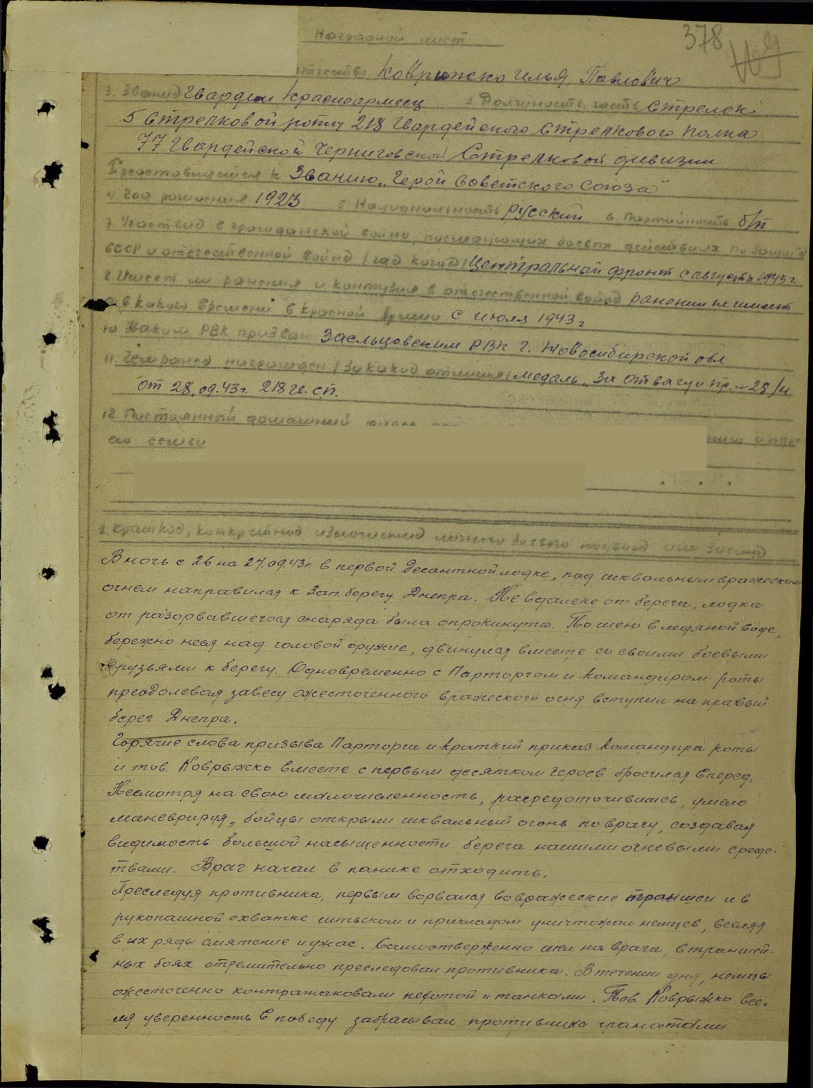 Наградной лист
378
Коврыжко Илья Павлович
3. Звание Гвардии Красноармеец должность, часть Стрелок
5 Стрелковой роты 218 Гвардейского Стрелкового полка
77 Гвардейской Черниговской Стрелковой дивизии
Представляется к Званию „Герой Советского Союза“
4. Год рождения 1923 5. Национальность Русский 6. Партийность б/п
7. Участвие в гражданской войне, последующих боевых действиях по защите
СССР и отечественной войне (где когда) Центральный фронт с августа 1943 г.
8. Имеет ли ранения и контузии в отечественной войне ранении не имеет
9. с какого времени в Красной Армии с июля 1943 г
10. Каким РВК призван Заельцовским РВК г. Новосибирской обл
11. Чем ранее награжден (за какие отличия) медаль „За отвагу“ пр. № 25/н
от 28.09.43 г. 218 гв. сп.
12. Постоянный домашний адрес
его семьи
1. Краткое, конкретное изложение личного боевого подвига или заслуг
В ночь с 26 на 27.09.43 г. в первой Десантной лодке, под шквальным вражеским
огнем направился к Зап. берегу Днепра. Не вдалеке от берега, лодка
от разорвавшегося снаряда была опрокинута. По шею в ледяной воде,
бережно неся над головой оружие, двинулся вместе со своими боевыми
друзьями к берегу. Одновременно с Парторгом и командиром роты
преодолевая завесу ожесточенного вражеского огня вступил на правый
берег Днепра.
Горячие слова призыва Парторга и краткий приказ командира роты
и тов. Коврыжко вместе с первым десятком героев бросился вперед.
Несмотря на свою малочисленность, рассредоточившись, умело
маневрируя, бойцы открыли шквальный огонь по врагу, создавая
видимость большой насыщенности берега нашими огневыми средс-
твами. Враг начал в панике отходить.
Преследуя противника, первым ворвался во вражеские траншеи и в
рукопашной схватке штыком и прикладом уничтожал немцев, вселяя
в их ряды смятение и ужас. Самоотверженно шел на врага, в траншей-
ных боях стремительно преследовал противника. В течении дня, немцы
ожесточенно контратаковали пехотой и танками. Тов. Коврыжко все-
ляя уверенность в победу забрасывал противника гранатами